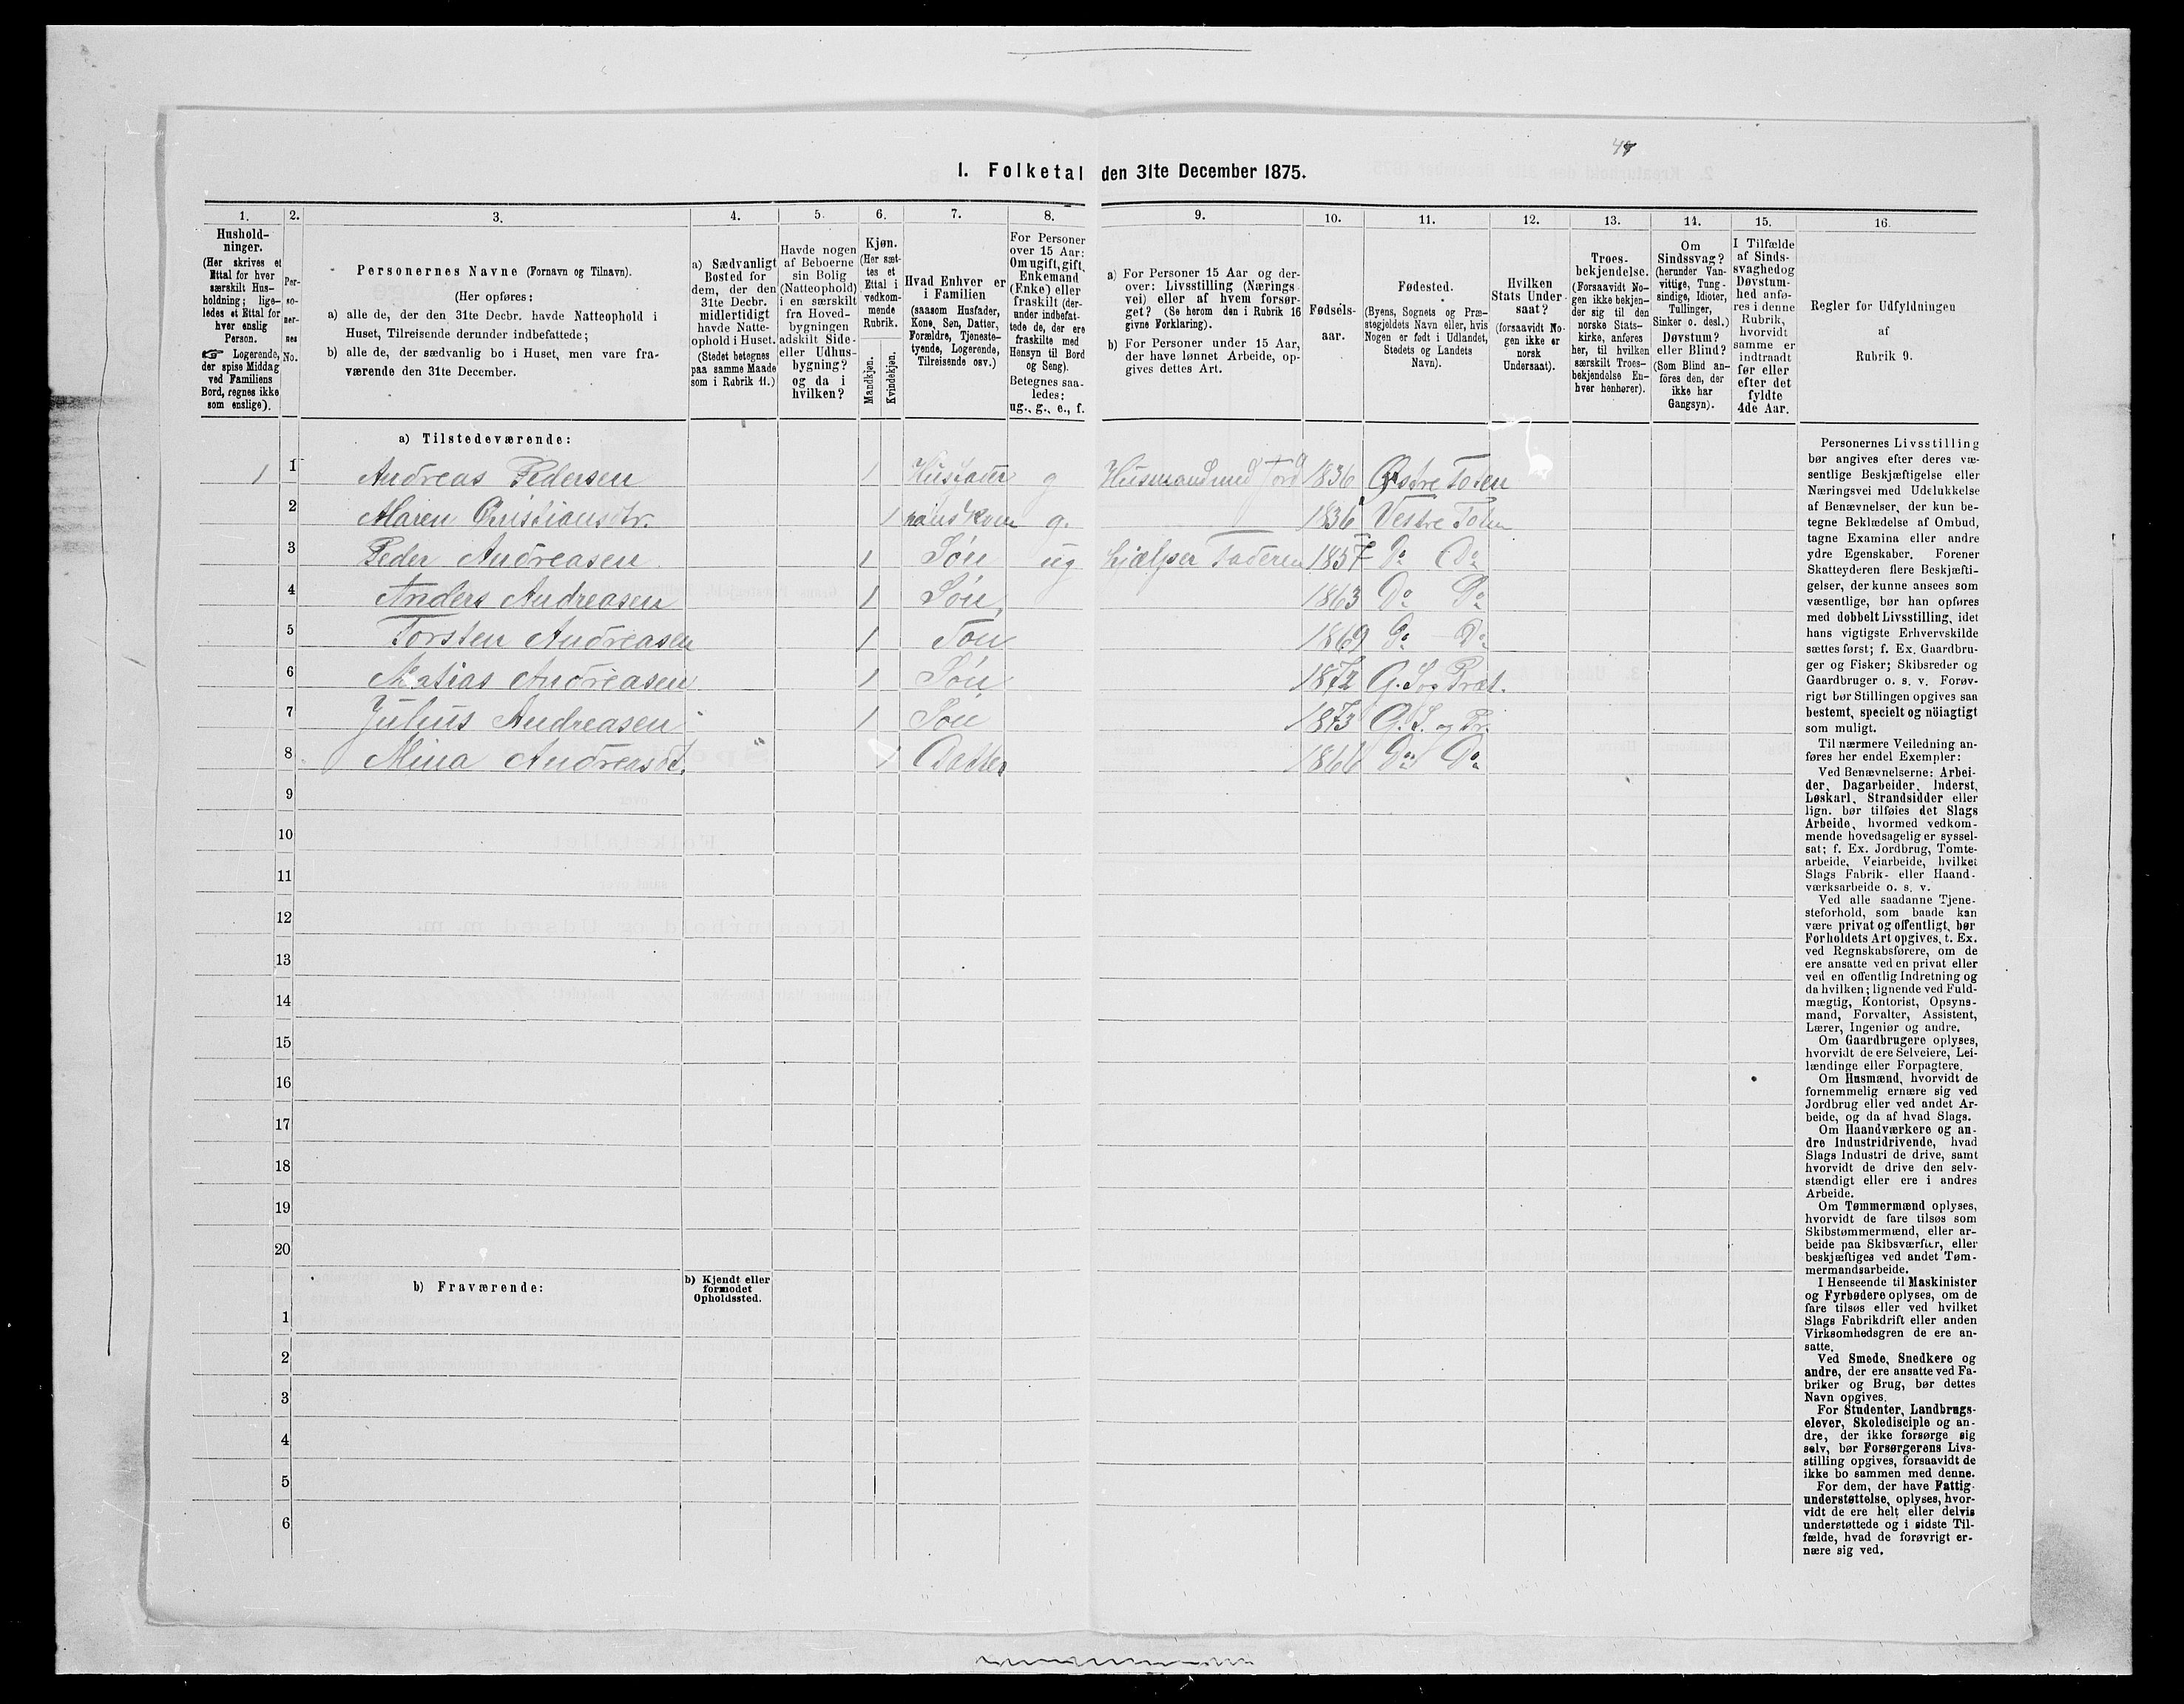 47
1. Folketal den 31te December 1875.
1. 2. 3. 4. 5. 6. 7. 8. 9. 10. 11. 12. 13. 14. 15. 16.
Hushold-
ninger.
(Her skrives et
Ettal for hver
særskilt Hus-
holdning; lige-
ledes et Ettal for
hver enslig
Person.
☞ Logerende,
der spise Middag
ved Familiens
Bord, regnes ikke
som enslige).
Per-
so-
ner-
nes
No.
Personernes Navne (Fornavn og Tilnavn).
(Her opføres:
a) alle de, der den 31te Decbr. havde Natteophold i
Huset, Tilreisende derunder indbefattede;
b) alle de, der sædvanlig bo i Huset, men vare fra-
værende den 31te December.
a) Sædvanligt
Bosted for
dem, der den
31te Decbr.
midlertidigt
havde Natte-
ophold i Huset.
(Stedet betegnes
paa samme Maade
som i Rubrik 11.)
Havde nogen
af Beboerne
sin Bolig
(Natteophold)
i en særskilt
fra Hoved-
bygningen
adskilt Side-
eller Udhus-
bygning?
og da i
hvilken?
Kjøn.
(Her sæt-
tes et
Ettal i
vedkom-
mende
Rubrik.
Mandkjøn.
Kvindekjøn.
Hvad Enhver er
i Familien
(saasom Husfader,
Kone, Søn, Datter,
Forældre, Tjeneste-
tyende, Logerende,
Tilreisende osv.)
For Personer
over 15 Aar:
Om ugift, gift,
Enkemand
(Enke) eller
fraskilt (der-
under indbefat-
tede de, der ere
fraskilte med
Hensyn til Bord
og Seng).
Betegnes saa-
ledes:
ug., g., e., f.
a) For Personer 15 Aar og der-
over: Livsstilling (Nærings
vei) eller af hvem forsør-
get? (Se herom den i Rubrik 16
givne Forklaring).
b) For Personer under 15 Aar,
der have lønnet Arbeide, op-
gives dettes Art.
Fødsels-
aar.
Fødested.
(Byens, Sognets og Præ-
stegjeldets Navn eller, hvis
Nogen er født i Udlandet,
Stedets og Landets
Navn).
Hvilken
Stats Under-
saat?
(forsaavidt No-
gen ikke er
norsk
Undersaat).
Troes-
bekjendelse.
(Forsaavidt No-
gen ikke bekjen-
der sig til den
norske Stats-
kirke, anføres
her, til hvilken
særskilt Troes-
bekjendelse En-
hver henhører).
Om
Sindssvag?
(herunder Van-
vittige, Tung-
sindige, Idioter,
Tullinger,
Sinker o. desl.)
Døvstum?
eller Blind?
(Som Blind an-
føres den, der
ikke har
Gangsyn).
I Tilfælde
af Sinds-
svaghed og
Døvstum-
hed anfø-
res i denne
Rubrik,
hvorvidt
samme er
indtraadt
før eller
efter det
fyldte
4de Aar.
Regler for Udfyldningen
af
Rubrik 9.
a) Tilstedeværende:
1 1 Andreas Pedersen 1 Husfader g Husmand med Jord 1836 Østre Toten
2 Maren Christiansdtr. 1 hans Kone g. 1836 Vestre Toten
3 Peder Andreasen 1 Søn ug hjælper Faderen 1857 Do Do
4 Anders Andreasen 1 Søn 1863 Do Do
5 Torsten Andreasen 1 Søn 1869 Do Do
6 Matias Andreasen 1 Søn 1872 G. S. og Præt.
7 Julius Andreasen 1 Søn 1873 G. S. og Pr.
8 Mina Andreasdt. 1 Datter 1866 Do Do
9
10
11
12
13
14
15
16
17
18
19
20
b) Fraværende:
b) Kjendt eller
formodet
Opholdssted.
1
2
3
4
5
6
Personernes Livsstilling
bør angives efter deres væ-
sentlige Beskjæftigelse eller
Næringsvei med Udelukkelse
af Benævnelser, der kun be-
tegne Beklædelse af Ombud,
tagne Examina eller andre
ydre Egenskaber. Forener
Skatteyderen flere Beskjæfti-
gelser, der kunne ansees som
væsentlige, bør han opføres
med dobbelt Livsstilling, idet
hans vigtigste Erhvervskilde
sættes først; f. Ex. Gaardbru-
ger og Fisker; Skibsreder og
Gaardbruger o. s. v. Forøv-
rigt bør Stillingen opgives saa
bestemt, specielt og nöiagtigt
som muligt.
Til nærmere Veiledning an-
føres her endel Exempler:
Ved Benævnelserne: Arbei-
der, Dagarbeider, Inderst,
Løskarl, Strandsidder eller
lign. bør tilføies det Slags
Arbeide, hvormed vedkom-
mende hovedsagelig er syssel-
sat; f. Ex. Jordbrug, Tomte-
arbeide, Veiarbeide, hvilket
Slags Fabrik- eller Haand-
værksarbeide o. s. v.
Ved alle saadanne Tjene-
steforhold, som baade kan
være privat og offentligt, bør
Forholdets Art opgives, t. Ex.
ved Regnskabsførere, om de
ere ansatte ved en privat eller
ved en offentlig Indretning og
da hvilken; lignende ved Fuld-
mægtig, Kontorist, Opsyns-
mand, Forvalter, Assistent,
Lærer, Ingeniør og andre.
Om Gaardbrugere oplyses,
hvorvidt de ere Selveiere, Lei-
lændinge eller Forpagtere.
Om Husmænd, hvorvidt de
fornemmelig ernære sig ved
Jordbrug eller ved andet Ar-
beide, og da af hvad Slags.
Om Haandværkere og an-
dre Industridrivende, hvad
Slags Industri de drive, samt
hvorvidt de drive den selv-
stændigt eller ere i andres
Arbeide.
Om Tømmermænd oplyses,
hvorvidt de fare tilsøs som
Skibstømmermænd, eller ar-
beide paa Skibsværfter, eller
beskjæftiges ved andet Tøm-
mermandsarbeide.
I Henseende til Maskinister
og Fyrbødere oplyses, om de
fare tilsøs eller ved hvilket
Slags Fabrikdrift eller anden
Virksomhedsgren de ere an-
satte.
Ved Smede, Snedkere og
andre, der ere ansatte ved Fa-
briker og Brug, bør dettes
Navn opgives.
For Studenter, Landbrugs-
elever, Skoledisciple og an-
dre, der ikke forsørge sig
selv, bør Forsørgerens Livs-
stilling opgives, forsaavidt de
ikke bo sammen med denne.
For dem, der have Fattig-
understøttelse, oplyses, hvor-
vidt de ere helt eller delvis
understøttede og i sidste Til-
fælde, hvad de forøvrigt er-
nære sig ved.